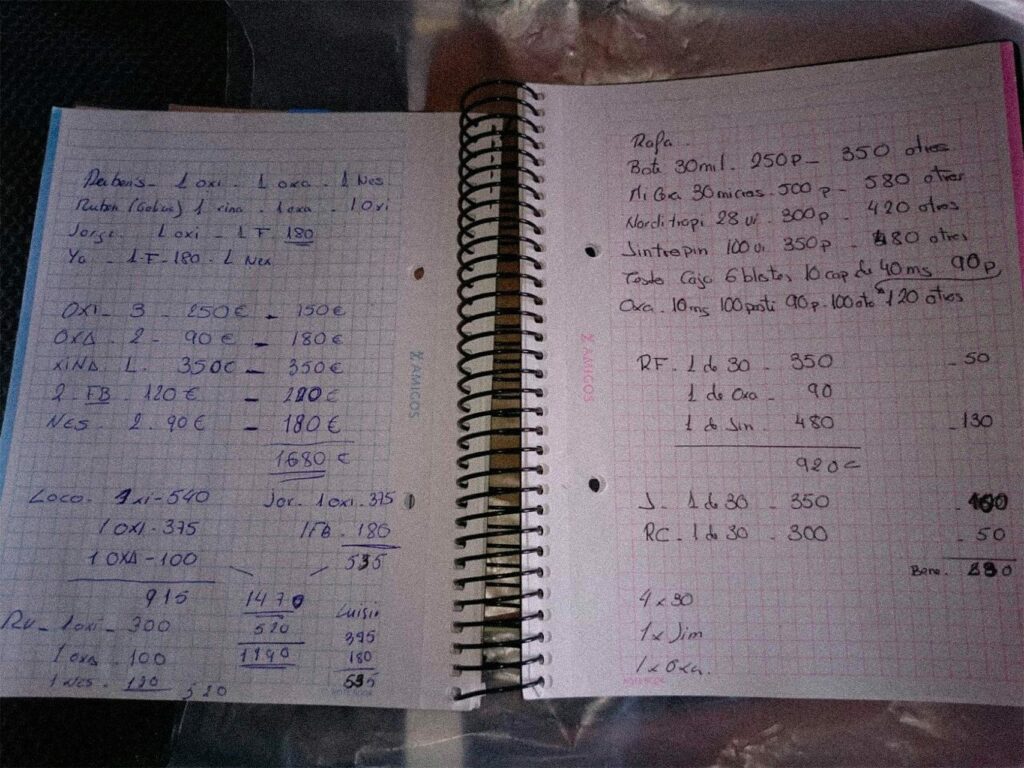 Rubens - 1 oxi - 1 oxa - 1 Nes
Ruben (Gobus) 1 xina - 1 oxa - 1 Oxi
Jorge - 1 oxi - 1 F - 180
Yo - 1 F - 180 - 1 Nes
OXI - 3 - 250 € - 150 €
OXA - 2 - 90 € - 180 €
XINA - 1 - 350 € - 350 €
2 - FB - 120 €
NES - 2 - 90 € - 180 €
1680 €
Loco - xi - 540
1 OXI - 375
1 OXA - 100
915
Jor - 1 oxi - 375
1 FB - 180
535
1470
520
1190
Luisin
395
180
535
Ru - 1 oxi - 300
1 oxa - 100
1 Nes - 120
520
% AMIGOS
Rafa
Bote 30 mil - 250 p - 350 otros
30 micras - 500 p - 580 otros
Norditropi 28 ui - 300 p - 420 otros
Sintropin 100 ui 350 p - 480 otros
Testo Caja 6 blotes 10 cap de 40 ms 90 p
Oxa - 10 ms 100 pasti 90 p - 120 otros
RF - 1 de 30 - 350 - 50
1 de Oxa - 90
1 de Sin - 480 - 130
920 €
J - 1 de 30 - 350
RC - 1 de 30 - 300 - 50
Bene -
4 x 30
1 x Sim
1 x Oxa.
% AMIGOS